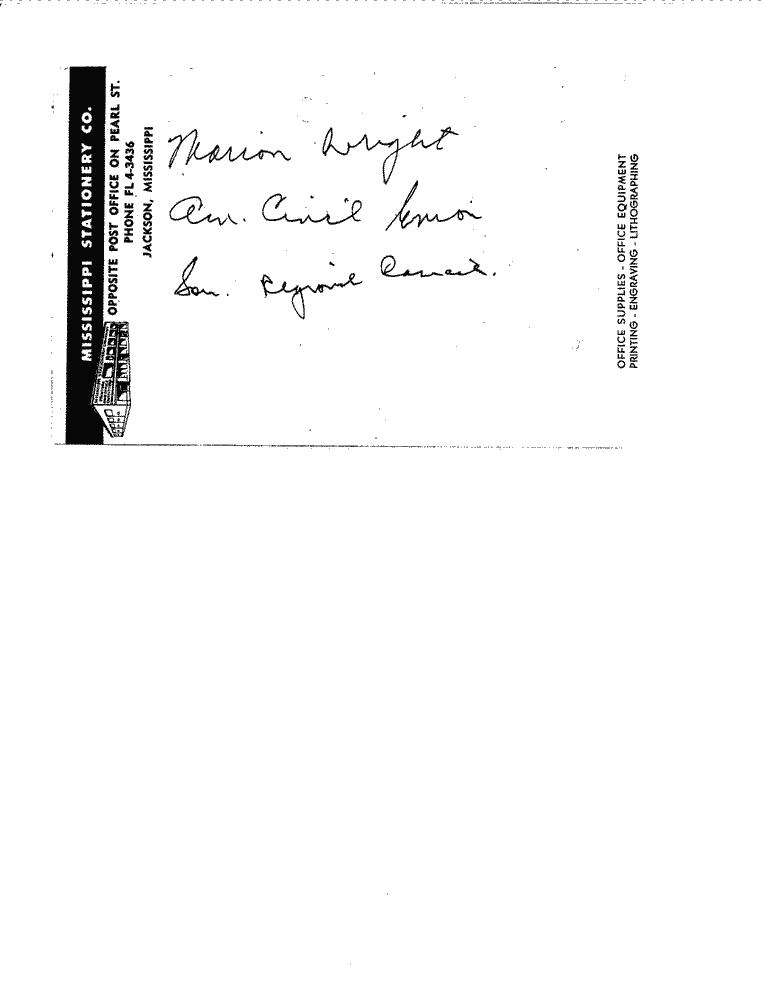 MISSISSIPPI STATIONERY CO.
OPPOSITE POST OFFICE ON PEARL ST.
PHONE FL 4-3436
JACKSON, MISSISSIPPI
Marion Wright
Am. Civil Union
Sou. Regional Council.
OFFICE SUPPLIES - OFFICE EQUIPMENT
PRINTING - ENGRAVING - LITHOGRAPHING